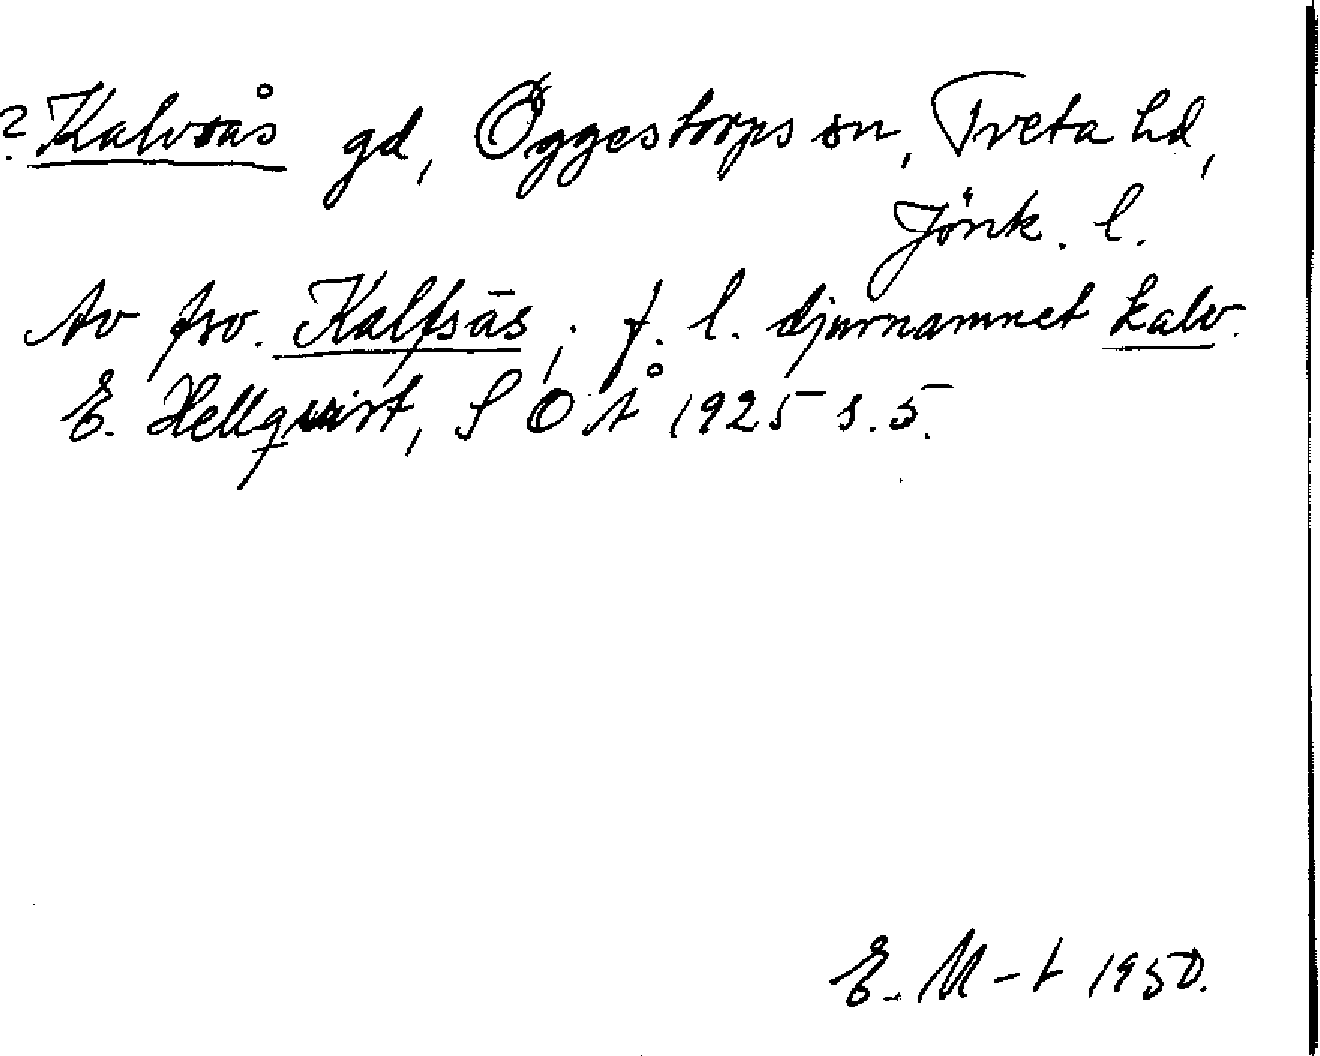 ? Kalvsås gd, Öggestorps sn, Tveta hd,
Jönk. l.
Av fsv. Kalfsās, f. l. djurnamnet kalv.
E. Hellquist, S O Å 1925 s. 5.
E. M-t 1950.